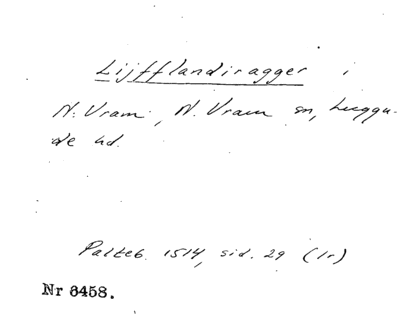 Lijfflandiragger i
N. Vram, N. Vram sn, Luggu-
de hd.
Palteb. 1514, sid. 29 (1r)
Nr 6458.